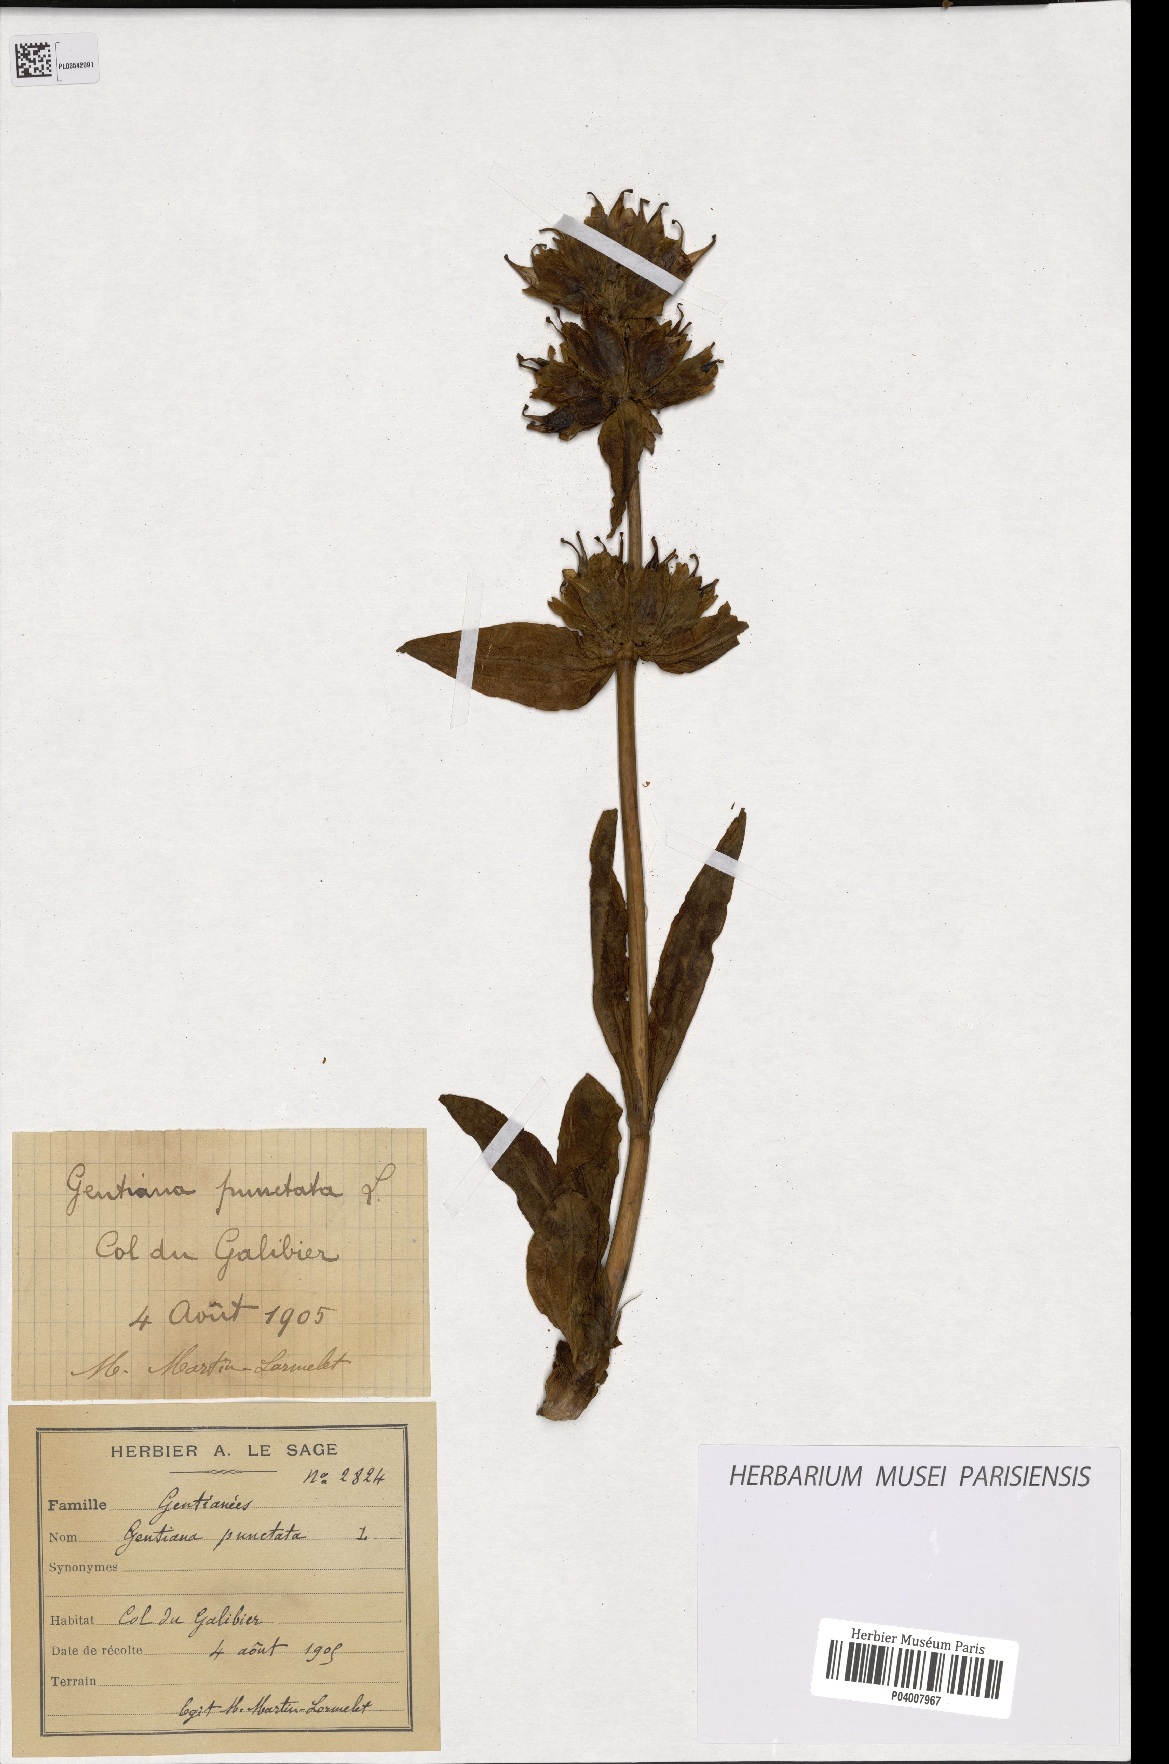 PL03542091
Gentiana punctata L.
Col du Galibier
4 Août 1905
M. Martin-Larmelet
HERBIER A. LE SAGE
No 2824
Famille Gentianées
Nom Gentiana punctata L
Synonymes
Habitat Col du Galibier
Date de récolte 4 août 1905
Terrain
legit M. Martin-Lormelet
HERBARIUM MUSEI PARISIENSIS
Herbier Muséum Paris
P04007967